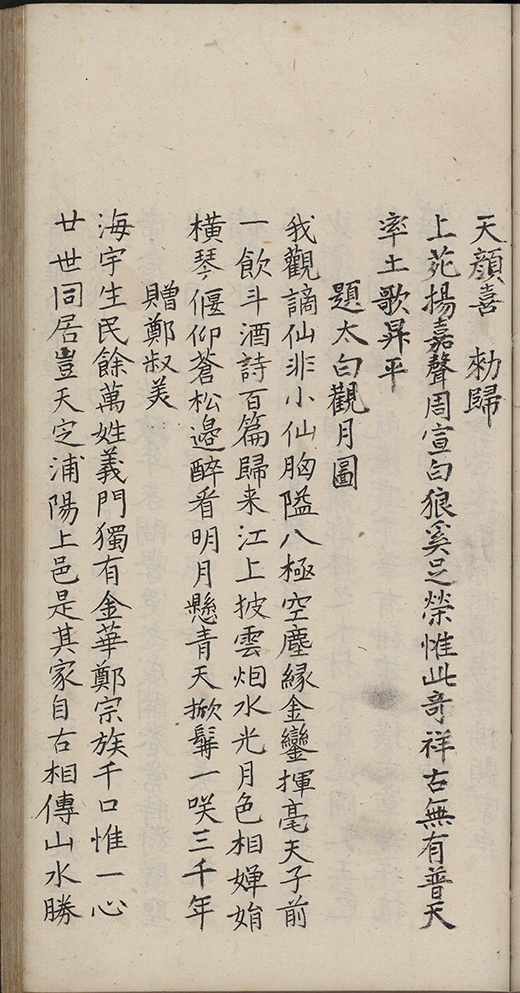 天顔喜 勑歸
上苑揚嘉聲周宣白狼奚足榮惟此奇祥古無有普天
率土歌昇平
題太白觀月圖
我觀謫仙非小仙胸隘八極空塵緣金鑾揮毫天子前
一飲斗酒詩百篇歸来江上披雲烟水光月色相嬋娟
橫琴偃仰蒼松邉醉看明月懸青天掀髯一咲三千年
贈鄭叔美
海宇生民餘萬姓義門獨有金華鄭宗族千口惟一心
廿世同居豈天定浦陽上邑是其家自古相傳山水勝